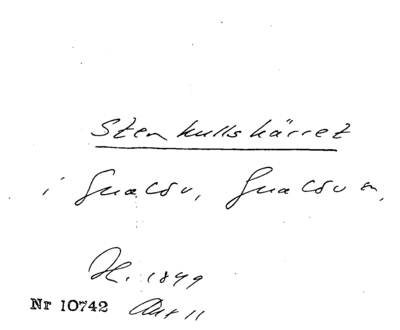 Stenkullskärret
i Gnalöv, Gnalöv a,
H. 1849
Nr 10742 Akt 11